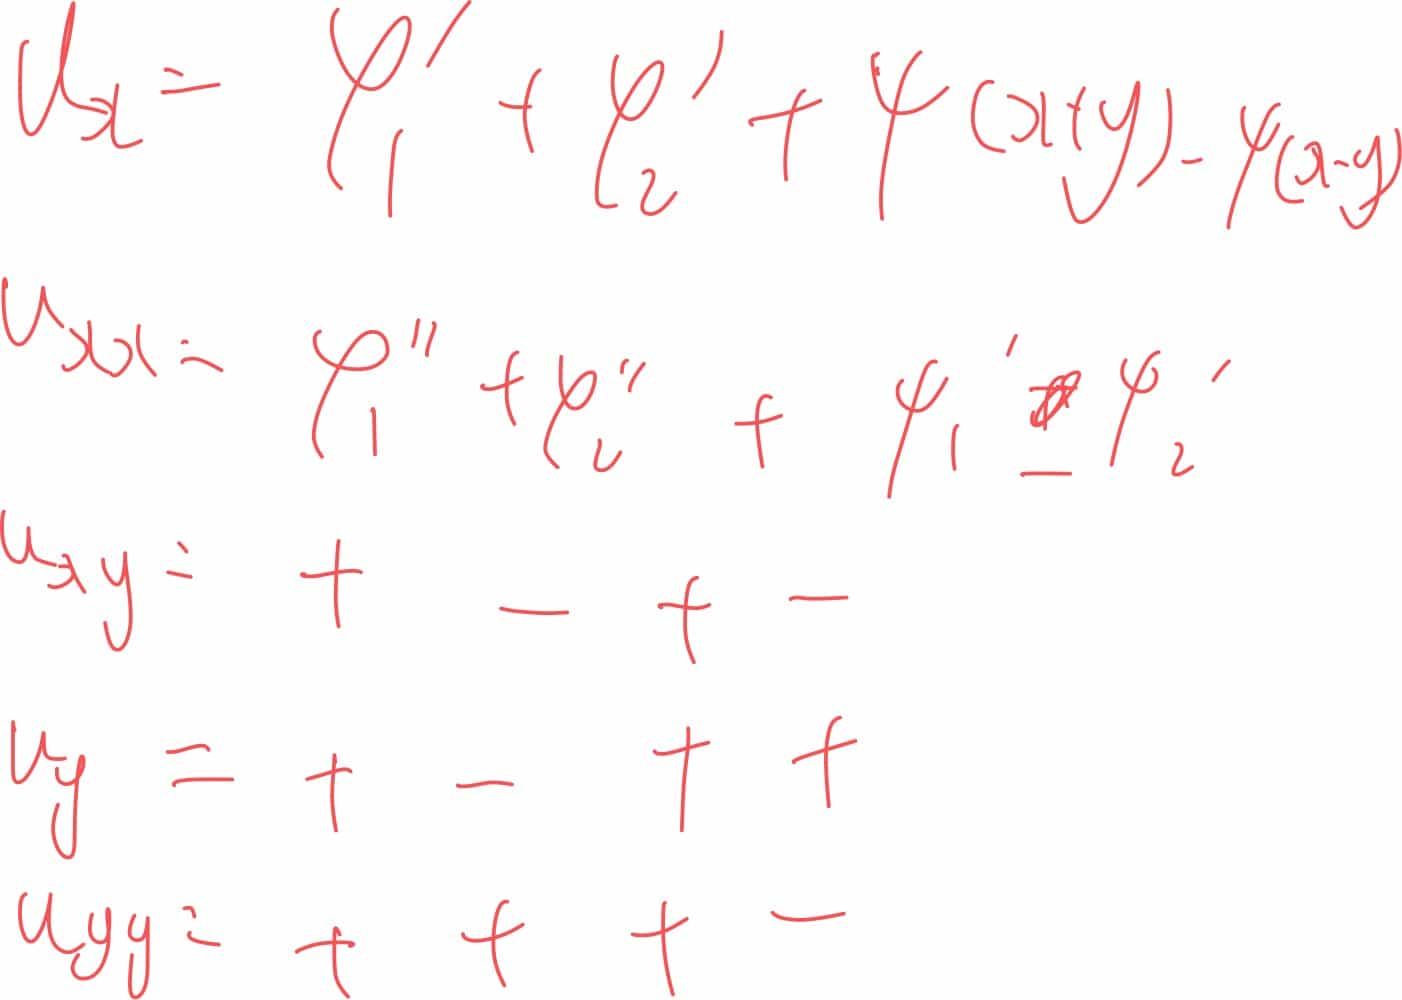 u_x = φ₁′ + φ₂′ + ψ(x+y) - ψ(x-y)
u_xx = φ₁″ + φ₂″ + ψ₁′ - ψ₂′
u_xy = + - + -
u_y = + - + +
u_yy = + + + -